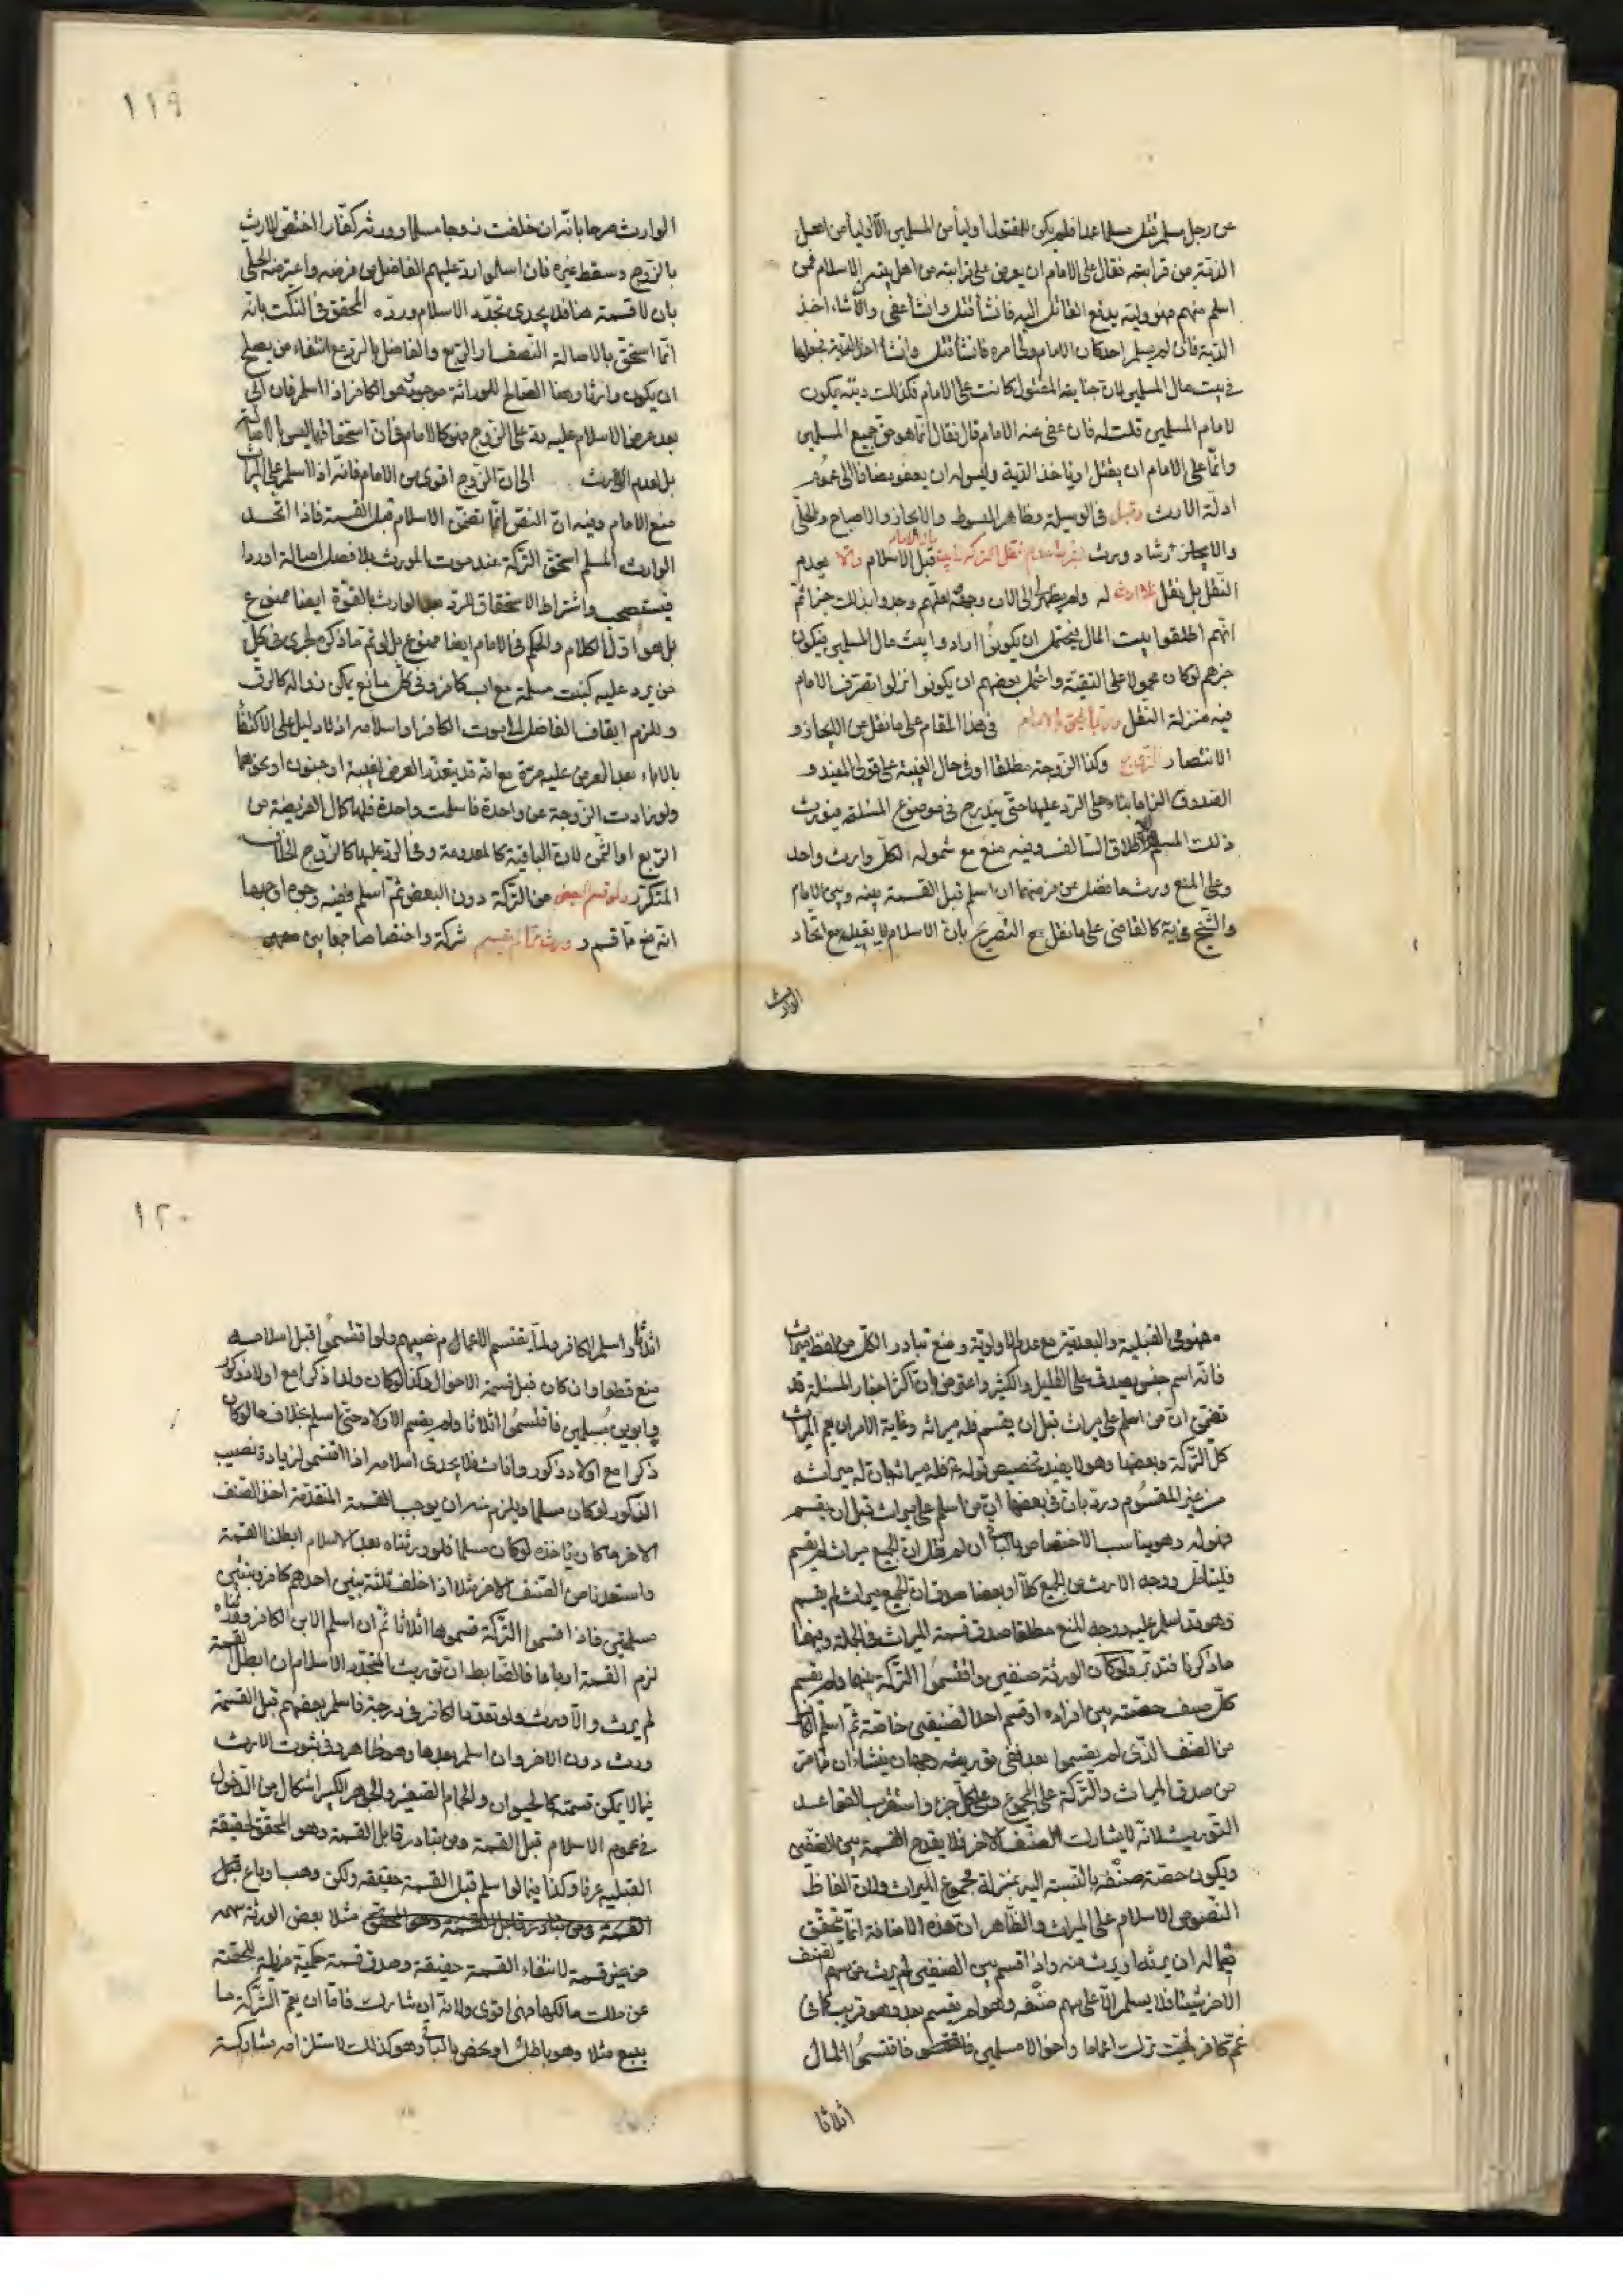 عن رجل مسلم قتل مسلما عمدا فلم يكن للمقتول اولياء من المسلمين الا اولياء من اهل
الذمة من قرابته فقال على الامام ان يعرض على قرابته من اهل بيته الاسلام فمن
اسلم منهم فهو وليه يدفع القاتل اليه فان شاء قتل وان شاء عفى وان شاء اخذ
الدية فان لم يسلم احد كان الامام ولى امره فان شاء قتل وان شاء اخذ الدية فجعلها
فى بيت مال المسلمين لان جناية المقتول كانت على الامام فكذلك ديته يكون
لامام المسلمين قلت له فان عفى عنه الامام قال فقال انما هو حق جميع المسلمين
وانما على الامام ان يقتل او ياخذ الدية وليس له ان يعفو مضافا الى عموم
ادلة الارث وقيل فى الوسيلة وظاهر المبسوط والايجاز والاصباح
والارشاد ويرث قبل الاسلام والا يعدم
النقل بل نقل للوارث له ولم يظهر لى الى الان وجهه
انهم اطلقوا بيت المال فيحتمل ان يكونوا ارادوا بيت مال المسلمين فيكون
خبرهم لو كان محمولا على التقية واحتمل بعضهم ان يكونوا نزلوا تصرف الامام
فيه منزلة النقل وربما يلحق بالامام فى هذا المقام على ما نقل عن الايجاز و
الانتصار الزوج وكذا الزوجة مطلقا او فى حال الغيبة على قولى المفيد و
الصدوق الزاما بناء على الرد عليها حتى يندرج فى موضوع المسئلة فيورث
ذلك المسلم لاطلاق السالف وفيه منع مع شموله لكل وارث واحد
وعلى المنع ورث ما فضل عن فرضهما ان اسلم قبل القسمة بينه وبين الامام
والشيخ فى ية كالقاضى على ما نقل مع التصريح بان الاسلام لا يقبله مع اتحاد
الوارث
١١٩
الوارث صرحا بانه ان خلفت زوجا مسلما وورثه كفارا اختص الارث
بالزوج وسقط غيره فان اسلموا رد عليهم الفاضل من فرضه واعترضه الحلى
بان لا قسمة هنا فلا يجدى تجدد الاسلام ورده المحقق فى النكت بانه
انما استحق بالاصالة النصف او الربع والفاضل بالرد مع انتفاء من يصلح
ان يكون وارثا وهنا الصالح للوراثة موجود وهو الكافر اذا اسلم فان ابى
بعد عرض الاسلام عليه رد على الزوج فهو كالامام فى ان استحقاقهما ليس بالاصالة
بل لعدم الوارث الى ان الزوج اقوى من الامام فانه اذا اسلم على الميراث
منع الامام وفيه ان النص انما تضمن الاسلام قبل القسمة فاذا اتحد
الوارث المسلم استحق التركة عند موت المورث بلا فصل اصالة او ردا
فيستصحب واشتراط الاستحقاق الرد بعدم الوارث بالقوة ايضا ممنوع
بل هو اول الكلام والحكم فى الامام ايضا ممنوع بل لو تم ما ذكره لجرى فى كل
من يرد عليه كبنت مسلمة مع اب كافر وفى كل مانع يمكن زواله كالرق
ويلزم ايقاف الفاضل الى موت الكافر او اسلامه اذ لا دليل على الاكتفاء
بالاباء بعد العرض عليه مرة مع انه قد يتعذر العرض لغيبة او جنون او نحوهما
ولو زادت الزوجة عن واحدة فاسلمت واحدة فلها كمال الفريضة من
الربع او الثمن لان الباقية كالمعدومة وفى الرد عليها كالزوج الخلاف
المتكرر ولو قسم البعض من التركة دون البعض ثم اسلم ففيه وجوه اوجهها
انه منع مما قسم و ورث مما لم يقسم شركة واختصاصا جمعا بين
مفهومى القبلية والبعدية مع عدم الاولوية ومنع تبادر الكل من لفظ ميراث
فانه اسم جنس يصدق على القليل والكثير واعترض بان اكثر اخبار المسئلة قد
تضمن ان من اسلم على ميراث قبل ان يقسم فله ميراثه وغاية الامر ان يعم الميراث
كل التركة وبعضها وهو لا يفيد تخصيص قوله فله ميراثه بان له ميراثه
من غير المقسوم ورد بان فى بعضها ان من اسلم على ميراث قبل ان يقسم
فهو له وهو يناسب الاختصاص بالباقى ان لم نقل ان الجميع ميراث لم يقسم
فليتامل ووجه الارث من الجميع كلا او بعضا صدق ان الجميع ميراث لم يقسم
وهو قد اسلم عليه ووجه المنع مطلقا صدق قسمة الميراث فى الجملة وفيهما
ما ذكرنا فتدبر ولو كان الورثة صنفين واقتسموا التركة بينهما ولم يقسم
كل صنف حصته بين افراده او قسم احد الصنفين خاصة ثم اسلم الكافر
من الصنف الذى لم يقسموا بعد ففى توريثه وجهان ينشاءان مما مر
من صدق الميراث والتركة على المجموع وعلى كل جزء واستقرب القواعد
التوريث لانه لا يشارك الصنف الاخر فلا يقدح القسمة بين الصنفين
ويكون حصة صنفه بالنسبة اليه بمنزلة مجموع الميراث ولان الفاظ
النصوص الاسلام على الميراث والظاهر ان هذه الاضافة انما تتحقق
فيما له ان يرثه او يرث منه واذا قسم بين الصنفين لم يرث من سهم الصنف
الاخر شيئا فلا يسلم الا على سهم صنفه وهو لم يقسم بعد وهو قريب كما فى
عم كافر لميت ترك اعماما واخوالا مسلمين فاقتسموا المال
اثلاثا
١٢٠
اثلاثا واسلم الكافر ولما يقتسم الاعمام نصيبهم ولو اقتسموا قبل اسلامه
منع قطعا وان كان قبل قسمة الاخوال وكذا لو كان ولدا ذكرا مع اولاد ذكور
وابوين مسلمين فاقتسموا اثلاثا ولم يقسم الاولاد حتى اسلم بخلاف ما لو كان
ذكرا مع اولاد ذكور واناث فلا يجدى اسلامه اذا اقتسموا لزيادة نصيب
الذكور لو كان مسلما ويلزم منه ان يوجب القسمة المتقدمة اخذ الصنف
الاخر ما كان ياخذه لو كان مسلما فلو ورثناه بعد الاسلام ابطلنا القسمة
واستعدنا من الصنف الاخر مثلا اذا خلف ثلثة بنين احدهم كافر وبنتين
مسلمتين فاذا قسموا التركة قسموها اثلاثا ثم ان اسلم الابن الكافر وورثناه
لزم القسمة ارباعا فالضابط ان توريث المتجدد الاسلام ان ابطل القسمة
لم يرث والا ورث ولو تعدد الكافر فى درجة فاسلم بعضهم قبل القسمة
ورث دون الاخر وان اسلم بعدها وهو ظاهر وفى ثبوت الارث
فيما لا يمكن قسمته كالحيوان والحمام الصغير والجوهر الكبير اشكال من الدخول
فى عموم الاسلام قبل القسمة ومن تبادر قابل القسمة وهو المحقق لحقيقة
القبلية عرفا وكذا فيما لو اسلم قبل القسمة حقيقة ولكن وهب او باع قبل
القسمة مثلا بعض الورثة سهمه
من غير قسمة لانتفاء القسمة حقيقة وصدق قسمة حكمية مزيلة للحصة
عن ملك مالكها فهى اقوى ولانه ان شارك فاما ان يعم الشركة ما
بيع مثلا وهو باطل او يخص بالباقى وهو كذلك لاستلزامه مشاركة